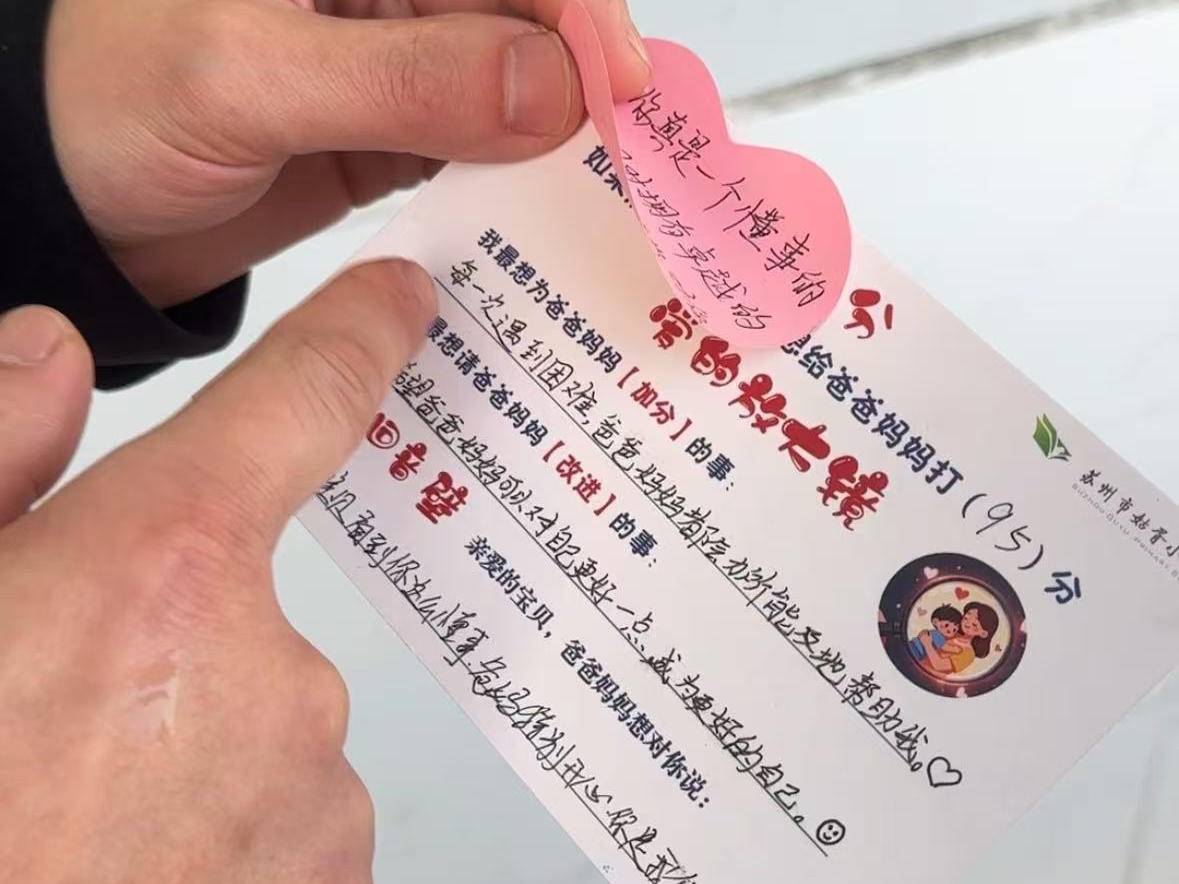 你真是一个懂事的
拥有卓越的
如果
分
想给爸爸妈妈打（95）分
苏州市姑胥小
爱的放大镜
我最想为爸爸妈妈【加分】的事：
每一次遇到困难，爸爸妈妈都会力所能及地帮助我。♡
最想请爸爸妈妈【改进】的事：
希望爸爸妈妈可以对自己更好一点，成为更好的自己。☺
回音壁
亲爱的宝贝，爸爸妈妈想对你说：
看到你这么懂事，爸妈特别开心，你是我们